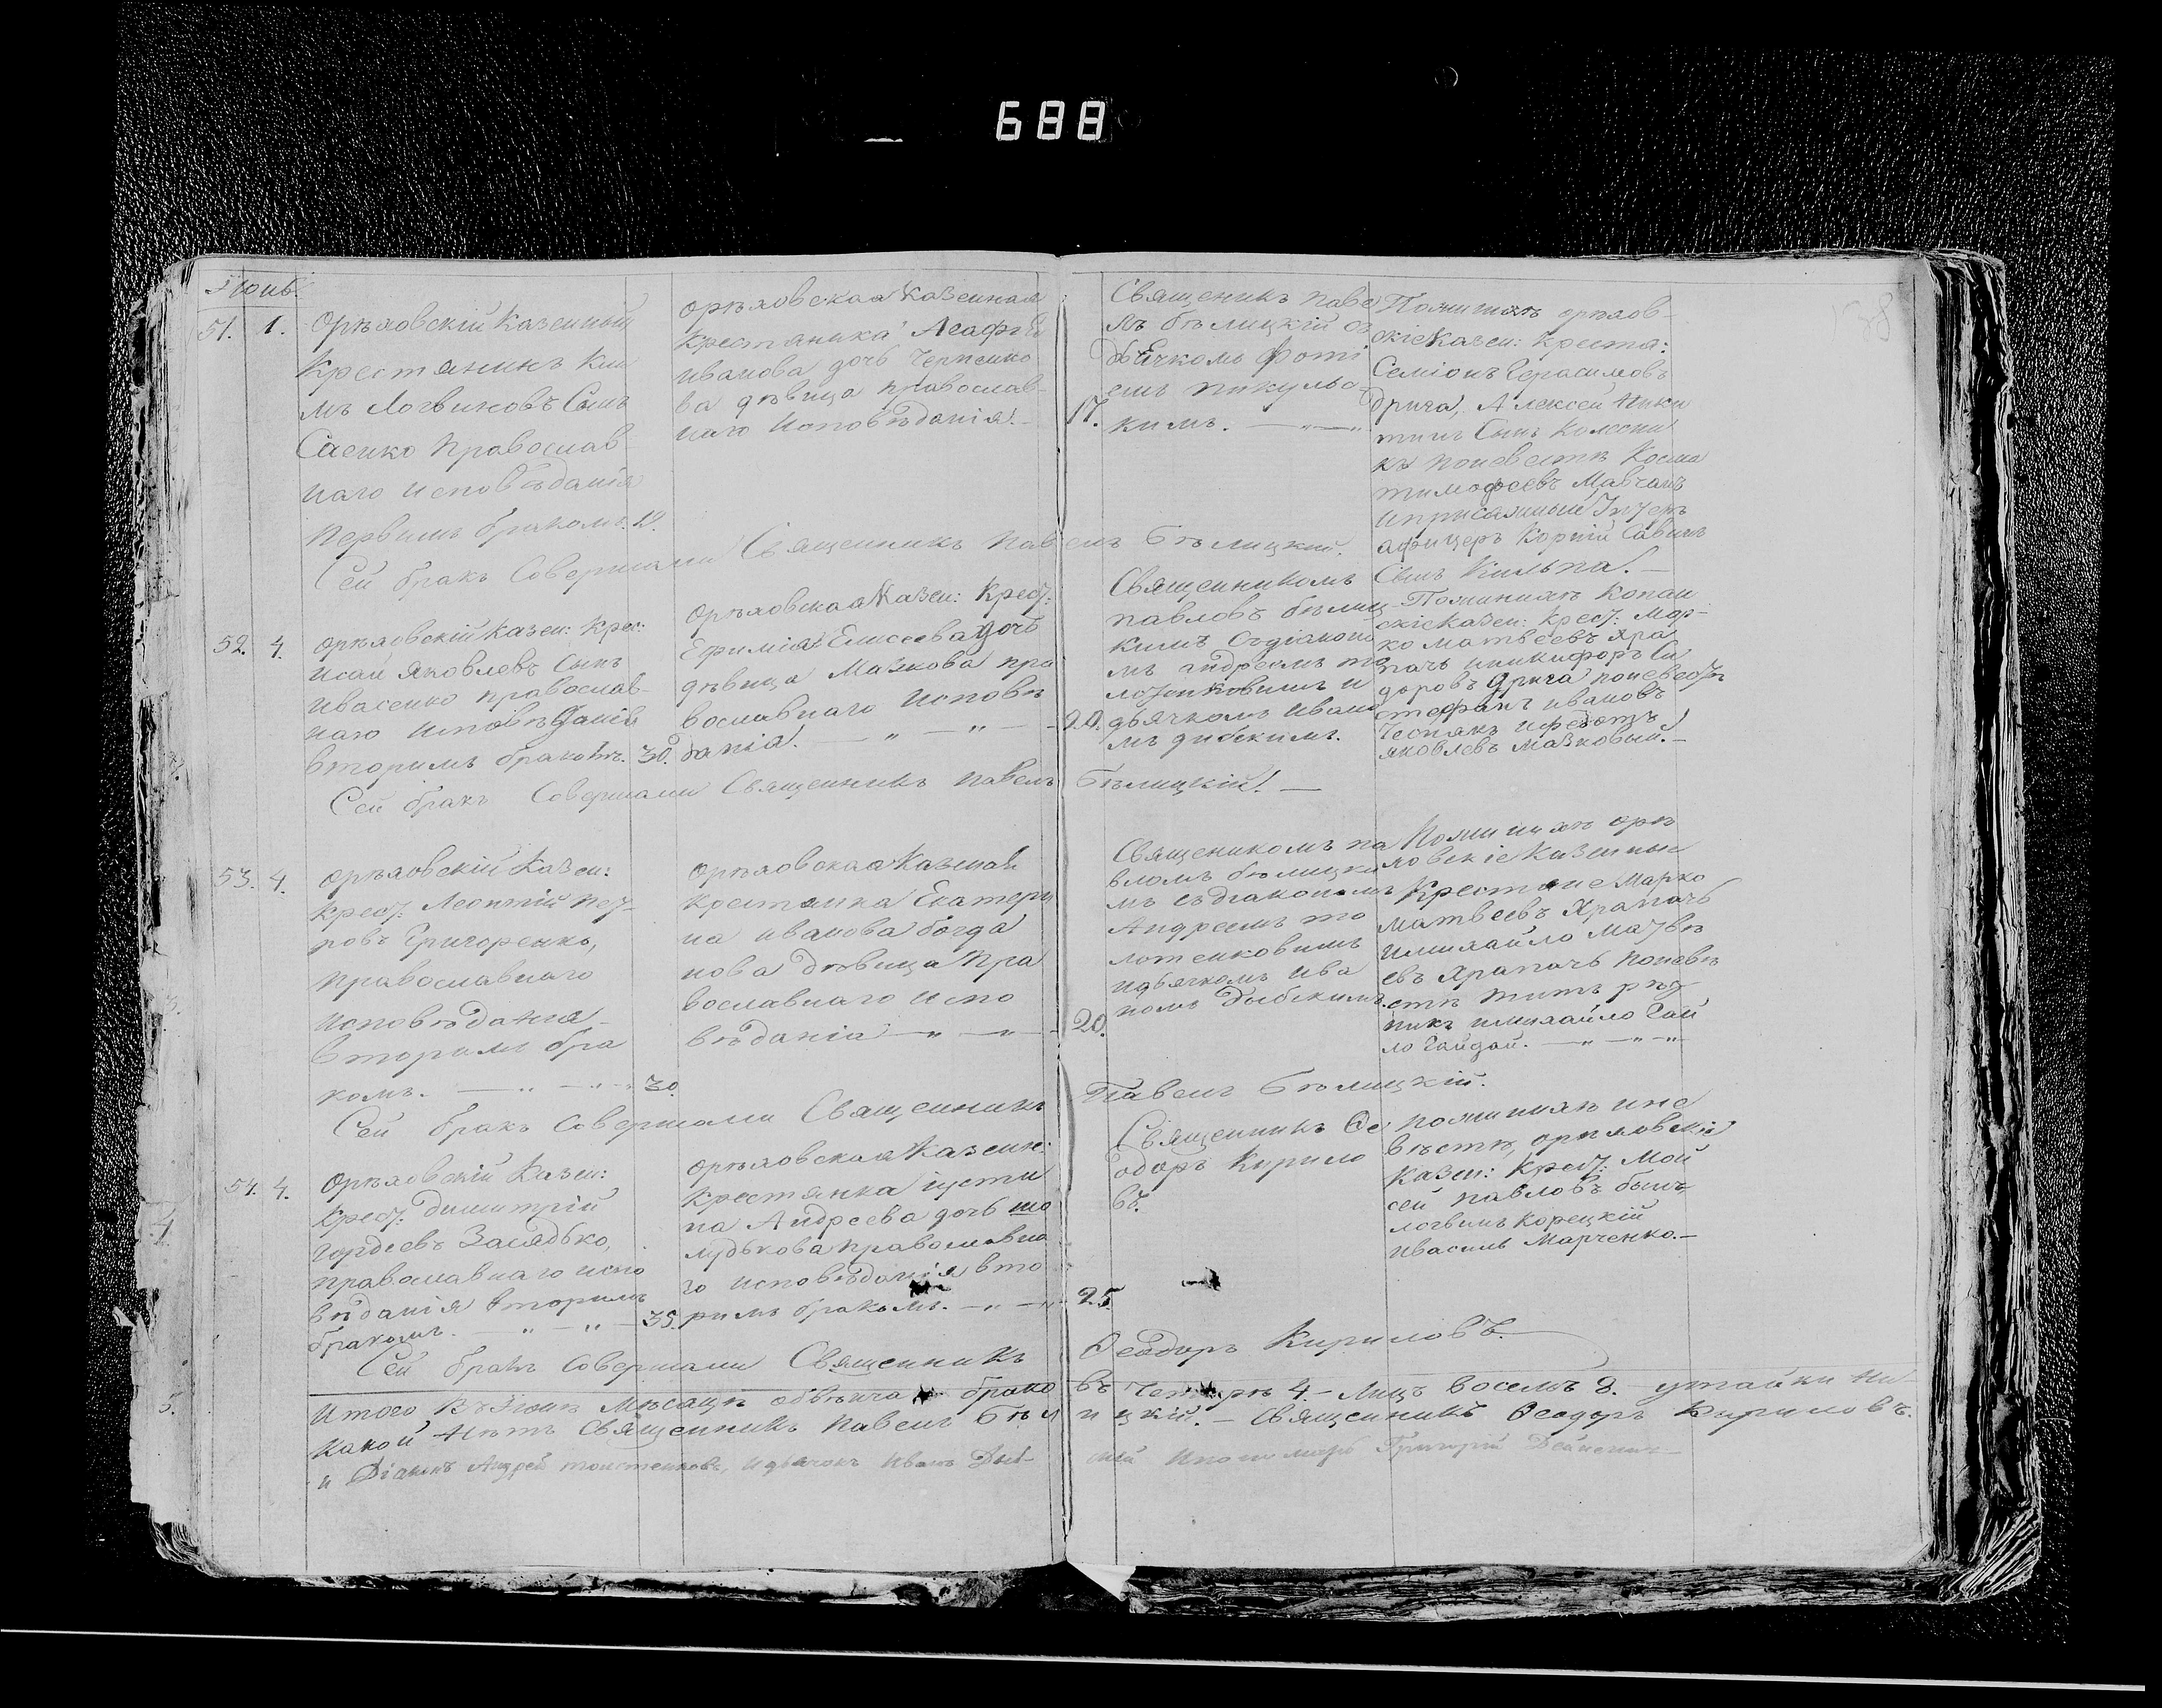 688
Іюнь.
51. 1. Орѣховскій Казенный
Крестянинъ Ки
мъ Логвиновъ Сынъ
Саенко Православ-
наго исповѣданія
первимъ бракомъ. 19.
орѣховская Казенная
Крестянка Агафія
иванова дочь Черненко
ва дѣвица православ-
наго Исповѣданія. 17.
Священикъ паве
лъ бѣлицкій съ
дьячкомъ Фоті
емъ пикульс-
кимъ.
Поженихѣ орѣхов-
скіе Казен: Креста:
Семіонъ Герасимовъ
Дрига, Алексей Ники
тинъ Сынъ Колесни
къ поневестѣ Косма
тимофеевъ Мавчанъ
иприсяжный Унтеръ
афицеръ Корній Савинъ
Сынъ Кильпа.
Сей бракъ Совершали Священникъ Павелъ Бѣлицкій.
52. 4. орѣховскій Казен: Крес:
Исаи Яковлевъ Сынъ
Ивасенко православ-
наго исповѣданія
вторимъ бракомъ. 30.
Орѣховская Казен: Крест:
Ефимія Елисеева дочь
дѣвица Мазкова пра
вославнаго Исповѣ
данія. 20.
Священикомъ
павловъ бѣлиц
кимъ съдіакони
мъ андреемъ то
лотенковимъ и
дьячкомъ ивано
мъ дибскимъ.
Поженихѣ Копан
скіе Казен: Крест: Мар-
ко матвеевъ Хра
пачь иникифоръ Си
доровъ Дрига поневестѣ
стефанъ ивановъ
Чеснакъ ифедотъ
яковлевъ мазковый.
Сей бракъ Совершали Священникъ Павелъ Бѣлицкій.
53. 4. орѣховскій Казен:
Крест: Леонтій пет-
ровъ Григоренко,
православнаго
исповѣданія
вторимъ бра
комъ. 30.
орѣховская Казенная
крестянка Екатери
на иванова богда
нова дѣвица Пра
вославнаго испо
вѣданія 20.
Священикомъ па
вломъ бѣлицки
мъ съдіакономъ
Андреемъ то
лотенковимъ
идьячкомъ ива
номъ Дыбскимъ.
Поженихѣ орѣ
ховскіе Казенные
Крестяне Марко
матвеевъ Храпачь
имихайло Матвѣ
евъ Храпачь поневѣ
стѣ титъ рѣд
никъ имихайло Гай
ло Гайдай.
Сей бракъ Совершали Священникъ Павелъ Бѣлицкій.
54. 4. Орѣховскій Казен:
Крест: димитрій
гордеевъ Засядько,
православнаго испо
вѣданія вторимъ
бракомъ. 35.
орѣховская Казенн:
Крестянка іусти
на Андреева дочь шо
лудькова православна
го исповѣданія вто
римъ бракомъ. 25.
Священникъ Ѳе
одоръ Кирило
въ.
поженихѣ ине
вѣстѣ, орѣховскіе
Казен: Крест: Мой
сей павловъ сынъ
логвинъ Корецкій
ивасиль Марченко.
Сей бракъ Совершали Священникъ Ѳеодоръ Кириловъ.
Итого Въ Іюнѣ Мѣсяцѣ обвѣнчано брако въ Четыре 4 - Лицъ восемъ 8. утайки Ни-
какой Нѣтъ Священникъ Павелъ Бѣл ицкій. - Священникъ Ѳеодоръ Кириловъ.
и Діаконъ Андрей толстенковъ, идьячокъ Иванъ Дыб- скій Ипономарь Григорій